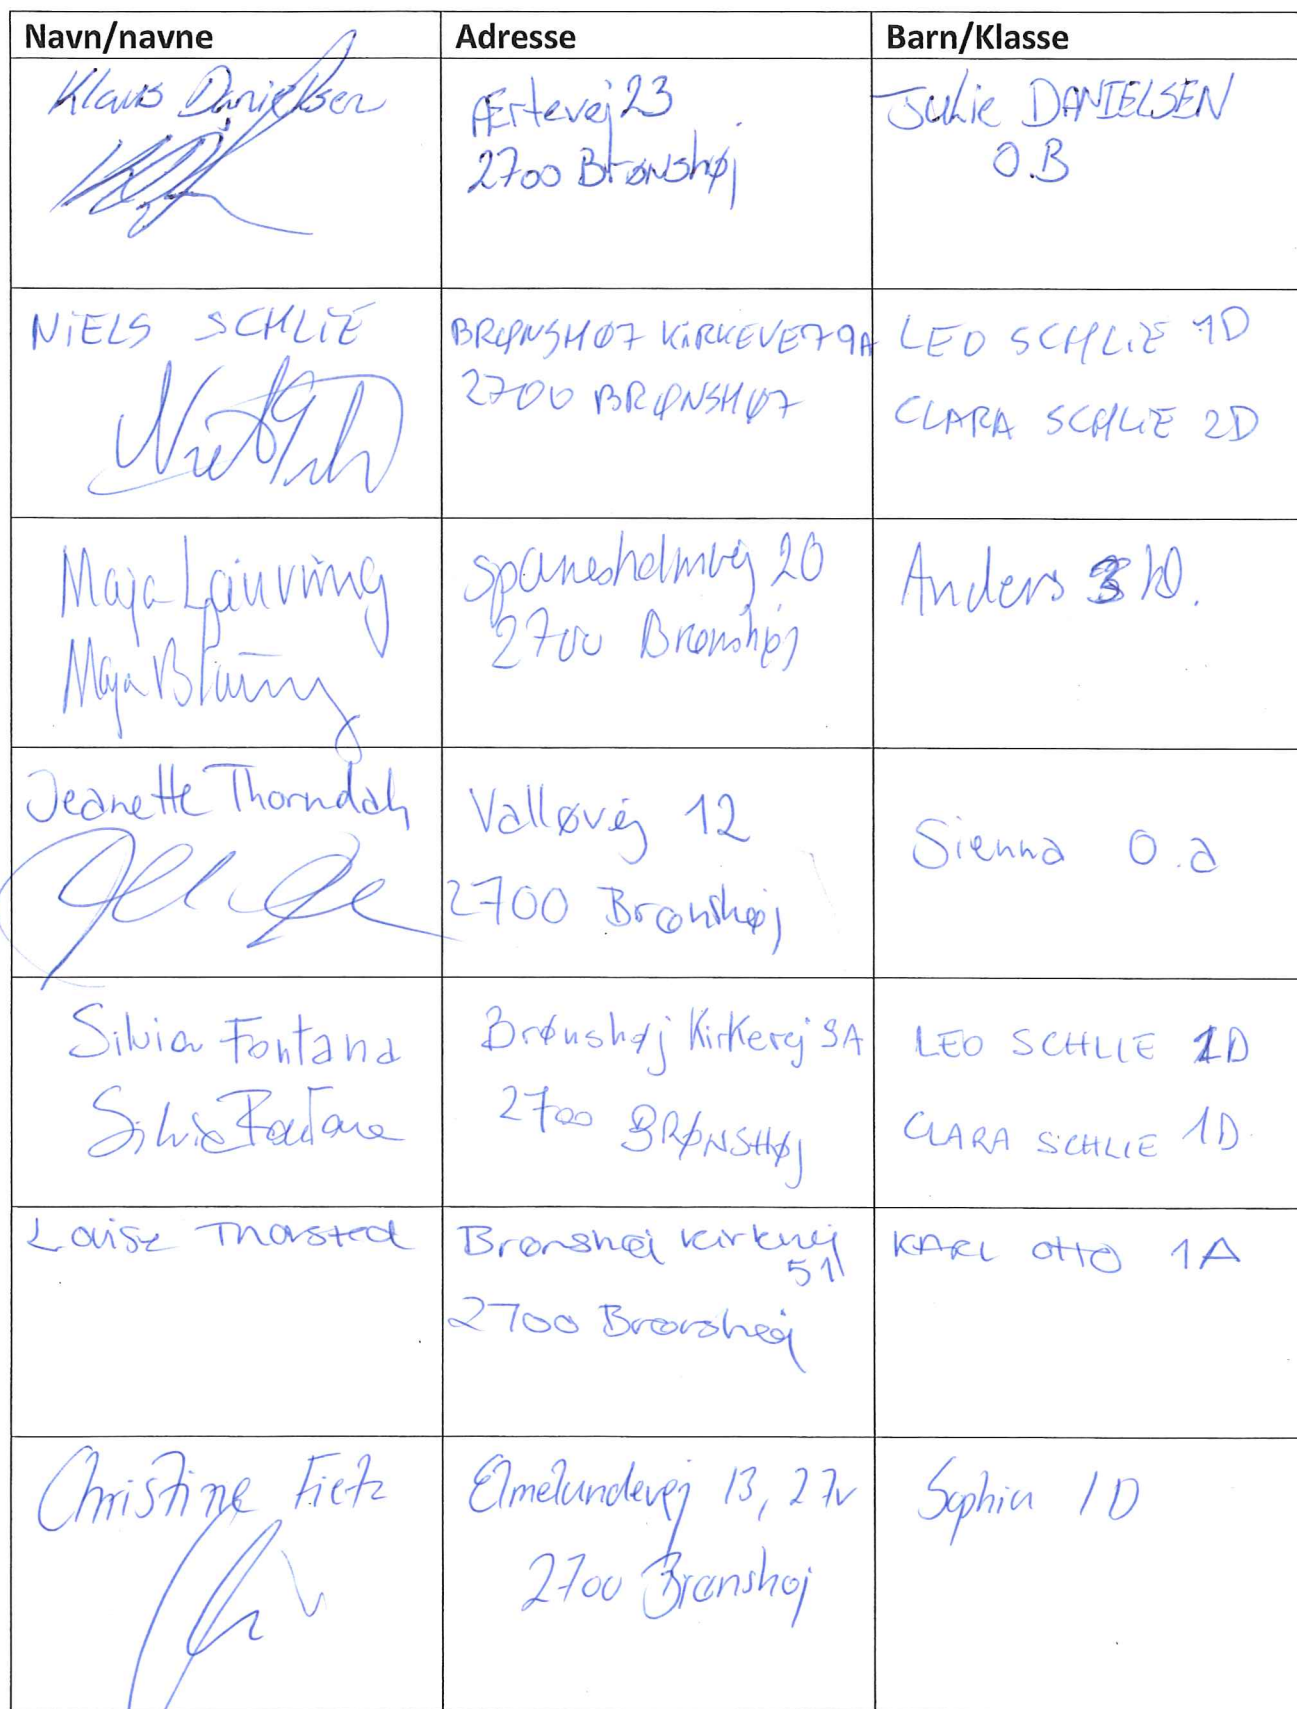 Navn/navne
Adresse
Barn/Klasse
Klaus Danielsen
Ærtevej 23
2700 Brønshøj
Julie DANIELSEN
O.B
NIELS SCHLIE
BRØNSHØJ KIRKEVEJ 9A
2700 BRØNSHØJ
LEO SCHLIE 1D
CLARA SCHLIE 2D
Maja
20
2700 Brønshøj
Anders
Jeanette Thorndahl
Valløvej 12
2700 Brønshøj
Sienna 0.a
Silvia Fontana
Silvia Fontana
Brønshøj Kirkevej 9A
2700 BRØNSHØJ
LEO SCHLIE 1D
CLARA SCHLIE 1D
Louise Thorsted
Brønshøj Kirkevej
51
2700 Brønshøj
KARL OTTO 1A
Christine Fietz
Elmelundevej 13, 2 tv
2700 Brønshøj
Sophia 1D